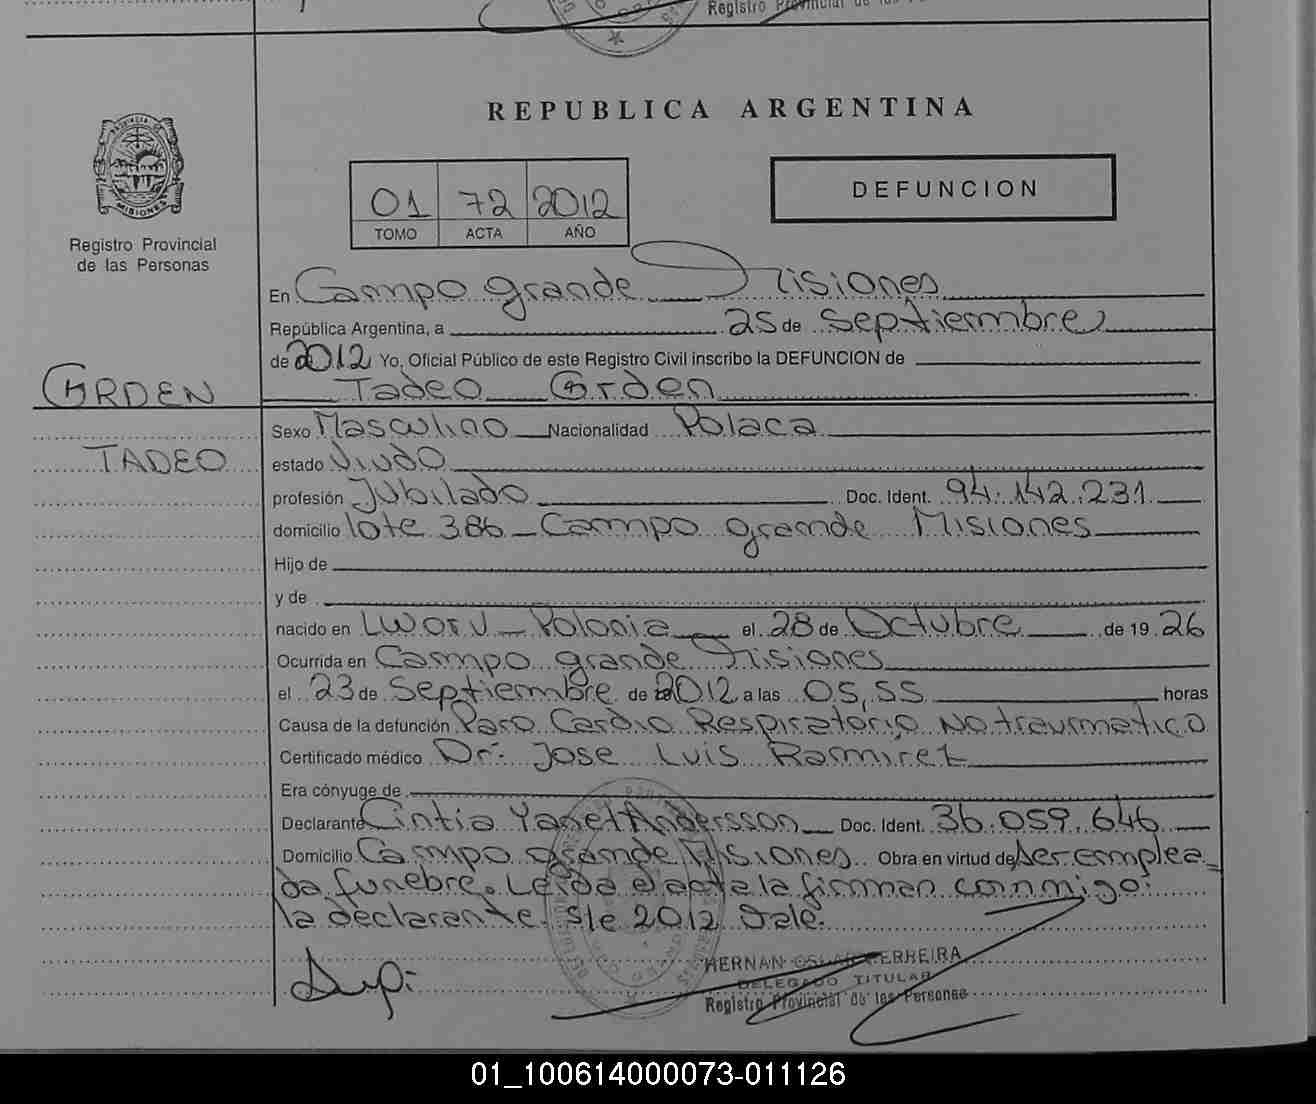 Registro Provincial de las P
REPUBLICA ARGENTINA
PROVINCIA DE
MISIONES
Registro Provincial
de las Personas
01 72 2012
TOMO ACTA AÑO
DEFUNCION
En Campo grande Misiones
República Argentina, a 25 de Septiembre
de 2012 Yo, Oficial Público de este Registro Civil inscribo la DEFUNCION de
GRDEN Tadeo Grden
Sexo Masculino Nacionalidad Polaca
TADEO estado Viudo
profesión Jubilado Doc. Ident. 94.142.231
domicilio lote 386 - Campo grande Misiones
Hijo de
y de
nacido en Lworv - Polonia el 28 de Octubre de 1926
Ocurrida en Campo grande Misiones
el 23 de Septiembre de 2012 a las 05,55 horas
Causa de la defunción Paro Cardio Respiratorio No traumatico
Certificado médico Dr: Jose Luis Ramirez
Era cónyuge de
Declarante Cintia Yanet Andersson Doc. Ident. 36.059.646
Domicilio Campo grande Misiones Obra en virtud de Ser emplea
da funebre. Leida el acta la firman conmigo:
la declarante. s/e 2012 Vale.
HERNAN OSCAR FERREIRA
DELEGADO TITULAR
Registro Provincial de las Personas
01_100614000073-011126